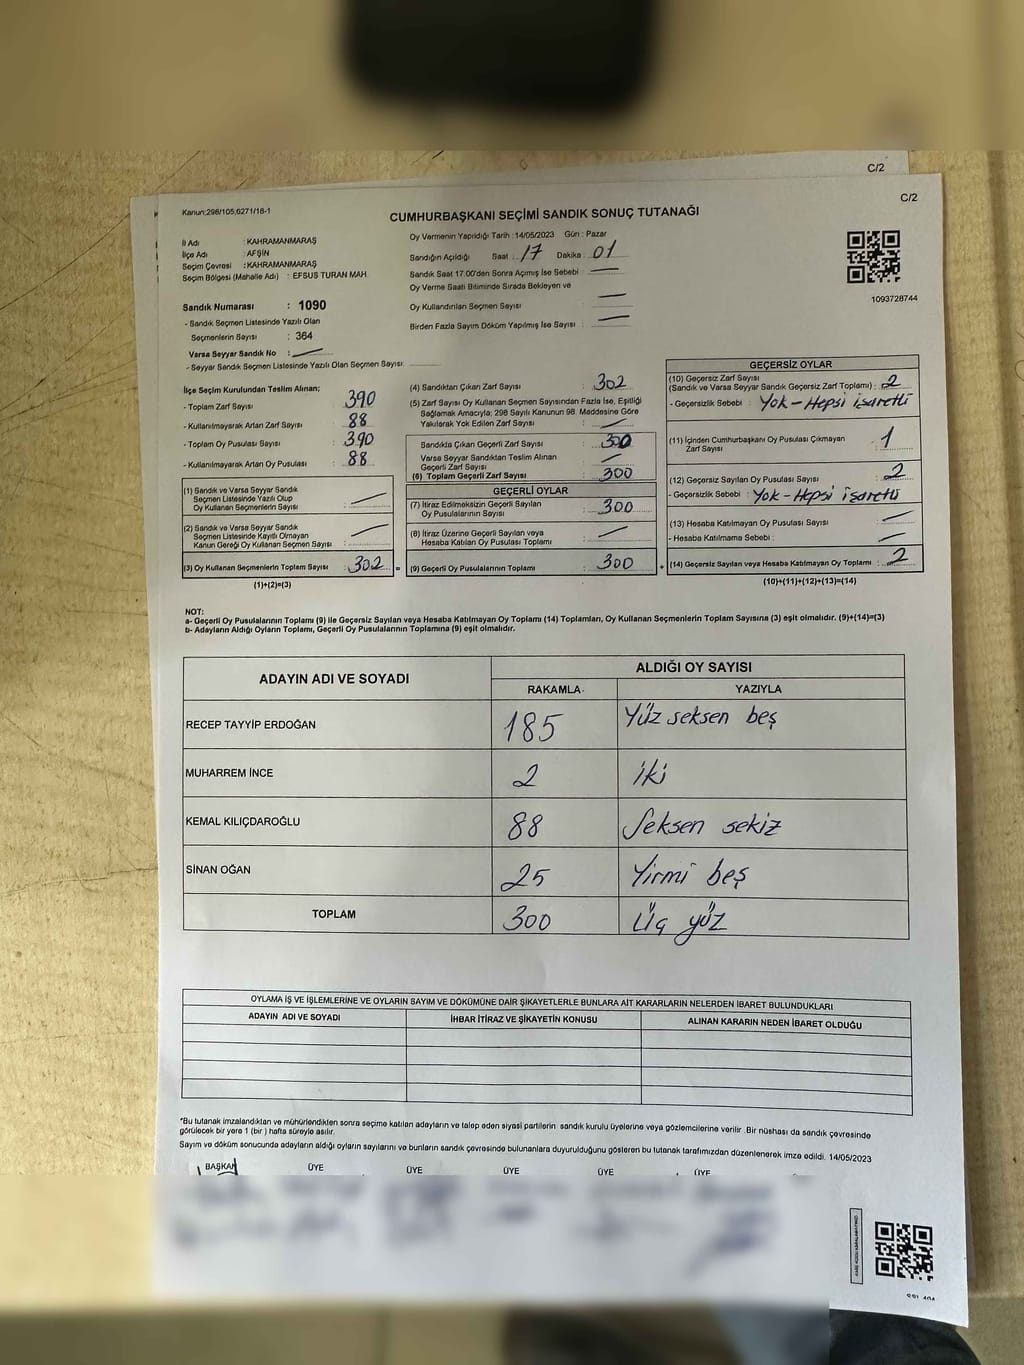 C/2
C/2
Kanun:298/105,6271/18-1
CUMHURBAŞKANI SEÇİMİ SANDIK SONUÇ TUTANAĞI
İl Adı : KAHRAMANMARAŞ
İlçe Adı : AFŞİN
Seçim Çevresi : KAHRAMANMARAŞ
Seçim Bölgesi (Mahalle Adı) : EFSUS TURAN MAH.
Sandık Numarası : 1090
- Sandık Seçmen Listesinde Yazılı Olan
Seçmenlerin Sayısı : 364
Varsa Seyyar Sandık No :
- Seyyar Sandık Seçmen Listesinde Yazılı Olan Seçmen Sayısı:
Oy Vermenin Yapıldığı Tarih :14/05/2023 Gün : Pazar
Sandığın Açıldığı Saat : 17 Dakika : 01
Sandık Saat 17:00'den Sonra Açımış İse Sebebi :
Oy Verme Saati Bitiminde Sırada Bekleyen ve
Oy Kullandırılan Seçmen Sayısı :
Birden Fazla Sayım Döküm Yapılmış İse Sayısı :
1093728744
İlçe Seçim Kurulundan Teslim Alınan;
- Toplam Zarf Sayısı : 390
- Kullanılmayarak Artan Zarf Sayısı : 88
- Toplam Oy Pusulası Sayısı : 390
- Kullanılmayarak Artan Oy Pusulası : 88
(1) Sandık ve Varsa Seyyar Sandık
Seçmen Listesinde Yazılı Olup
Oy Kullanan Seçmenlerin Sayısı :
(2) Sandık ve Varsa Seyyar Sandık
Seçmen Listesinde Kayıtlı Olmayan
Kanun Gereği Oy Kullanan Seçmen Sayısı :
(3) Oy Kullanan Seçmenlerin Toplam Sayısı : 302
(1)+(2)=(3)
(4) Sandıktan Çıkan Zarf Sayısı : 302
(5) Zarf Sayısı Oy Kullanan Seçmen Sayısından Fazla İse, Eşitliği
Sağlamak Amacıyla; 298 Sayılı Kanunun 98. Maddesine Göre
Yakılarak Yok Edilen Zarf Sayısı :
Sandıkta Çıkan Geçerli Zarf Sayısı : 300
Varsa Seyyar Sandıktan Teslim Alınan
Geçerli Zarf Sayısı :
(6) Toplam Geçerli Zarf Sayısı : 300
GEÇERLİ OYLAR
(7) İtiraz Edilmeksizin Geçerli Sayılan
Oy Pusulalarının Sayısı : 300
(8) İtiraz Üzerine Geçerli Sayılan veya
Hesaba Katılan Oy Pusulası Toplamı :
= (9) Geçerli Oy Pusulalarının Toplamı : 300
GEÇERSİZ OYLAR
(10) Geçersiz Zarf Sayısı
(Sandık ve Varsa Seyyar Sandık Geçersiz Zarf Toplamı) : 2
- Geçersizlik Sebebi : Yok - Hepsi işaretli
(11) İçinden Cumhurbaşkanı Oy Pusulası Çıkmayan
Zarf Sayısı : 1
(12) Geçersiz Sayılan Oy Pusulası Sayısı : 2
- Geçersizlik Sebebi : Yok - Hepsi işaretli
(13) Hesaba Katılmayan Oy Pusulası Sayısı :
- Hesaba Katılmama Sebebi :
+ (14) Geçersiz Sayılan veya Hesaba Katılmayan Oy Toplamı : 2
(10)+(11)+(12)+(13)=(14)
NOT:
a- Geçerli Oy Pusulalarının Toplamı (9) ile Geçersiz Sayılan veya Hesaba Katılmayan Oy Toplamı (14) Toplamları, Oy Kullanan Seçmenlerin Toplam Sayısına (3) eşit olmalıdır. (9)+(14)=(3)
b- Adayların Aldığı Oyların Toplamı, Geçerli Oy Pusulalarının Toplamına (9) eşit olmalıdır.
ADAYIN ADI VE SOYADI
ALDIĞI OY SAYISI
RAKAMLA YAZIYLA
RECEP TAYYİP ERDOĞAN 185 Yüz seksen beş
MUHARREM İNCE 2 iki
KEMAL KILIÇDAROĞLU 88 Seksen sekiz
SİNAN OĞAN 25 Yirmi beş
TOPLAM 300 Üç yüz
OYLAMA İŞ VE İŞLEMLERİNE VE OYLARIN SAYIM VE DÖKÜMÜNE DAİR ŞİKAYETLERLE BUNLARA AİT KARARLARIN NELERDEN İBARET BULUNDUKLARI
ADAYIN ADI VE SOYADI İHBAR İTİRAZ VE ŞİKAYETİN KONUSU ALINAN KARARIN NEDEN İBARET OLDUĞU
*Bu tutanak imzalandıktan ve mühürlendikten sonra seçime katılan adayların ve talep eden siyasi partilerin sandık kurulu üyelerine veya gözlemcilerine verilir .Bir nüshası da sandık çevresinde
görülecek bir yere 1 (bir ) hafta süreyle asılır.
Sayım ve döküm sonucunda adayların aldığı oyların sayılarını ve bunların sandık çevresinde bulunanlara duyurulduğunu gösteren bu tutanak tarafımızdan düzenlenerek imza edildi. 14/05/2023
BAŞKAN ÜYE ÜYE ÜYE ÜYE ÜYE